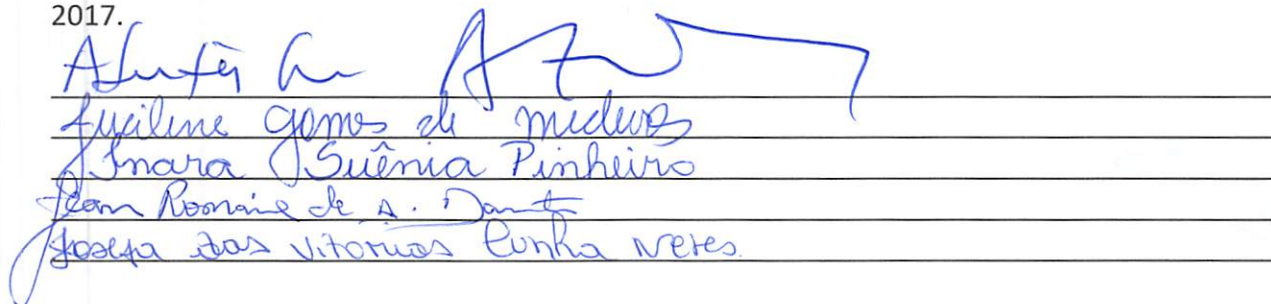 2017.
Lucilene Gomes de Medeiros
Inara Suênia Pinheiro
Jean Romaine de A.
Josefa das Vitorias Cunha Neves.